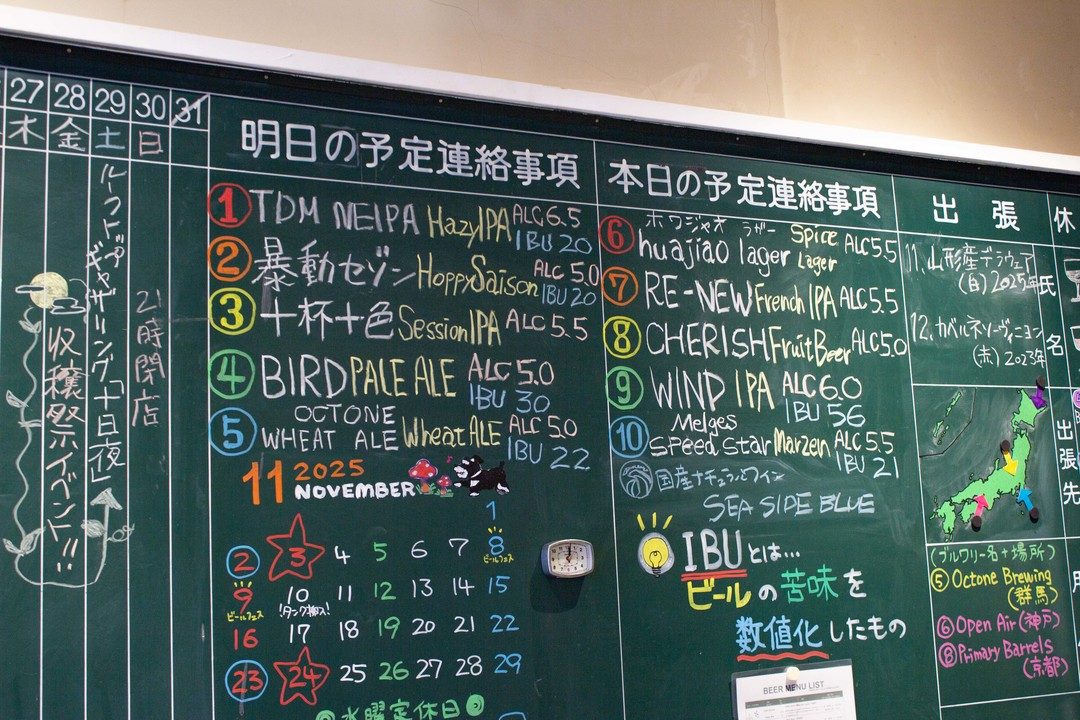 27 28 29 30 31
木 金 土 日
ルーフトップギャザリング「十日夜」
収穫祭イベント!!
21時閉店
明日の予定連絡事項
① TDM NEIPA Hazy IPA ALC 6.5 IBU 20
② 暴動セゾン Hoppy Saison ALC 5.0 IBU 20
③ 十杯十色 Session IPA ALC 5.5
④ BIRD PALE ALE ALC 5.0 IBU 30
⑤ OCTONE WHEAT ALE Wheat ALE ALC 5.0 IBU 22
11 2025 NOVEMBER
1
2 3 4 5 6 7 8
ビールフェス
9 10 11 12 13 14 15
ビールフェス
16 17 18 19 20 21 22
23 24 25 26 27 28 29
水曜定休日
本日の予定連絡事項
ホワジャオ ラガー
⑥ huajiao lager Spice Lager ALC 5.5
⑦ RE-NEW French IPA ALC 5.5
⑧ CHERISH Fruit Beer ALC 5.0
⑨ WIND IPA ALC 6.0 IBU 56
⑩ Melges Speed Star Marzen ALC 5.5 IBU 21
国産ナチュラルワイン
SEA SIDE BLUE
IBUとは…
ビールの苦味を
数値化したもの
BEER MENU LIST
出張
11. 山形産デラウェア
(白) 2025年
12. カベルネソーヴィニヨン
(赤) 2023年
氏名
出張先
(ブルワリー名+場所)
⑤ Octone Brewing
(群馬)
⑥ Open Air (神戸)
⑧ Primary Barrels
(京都)
休